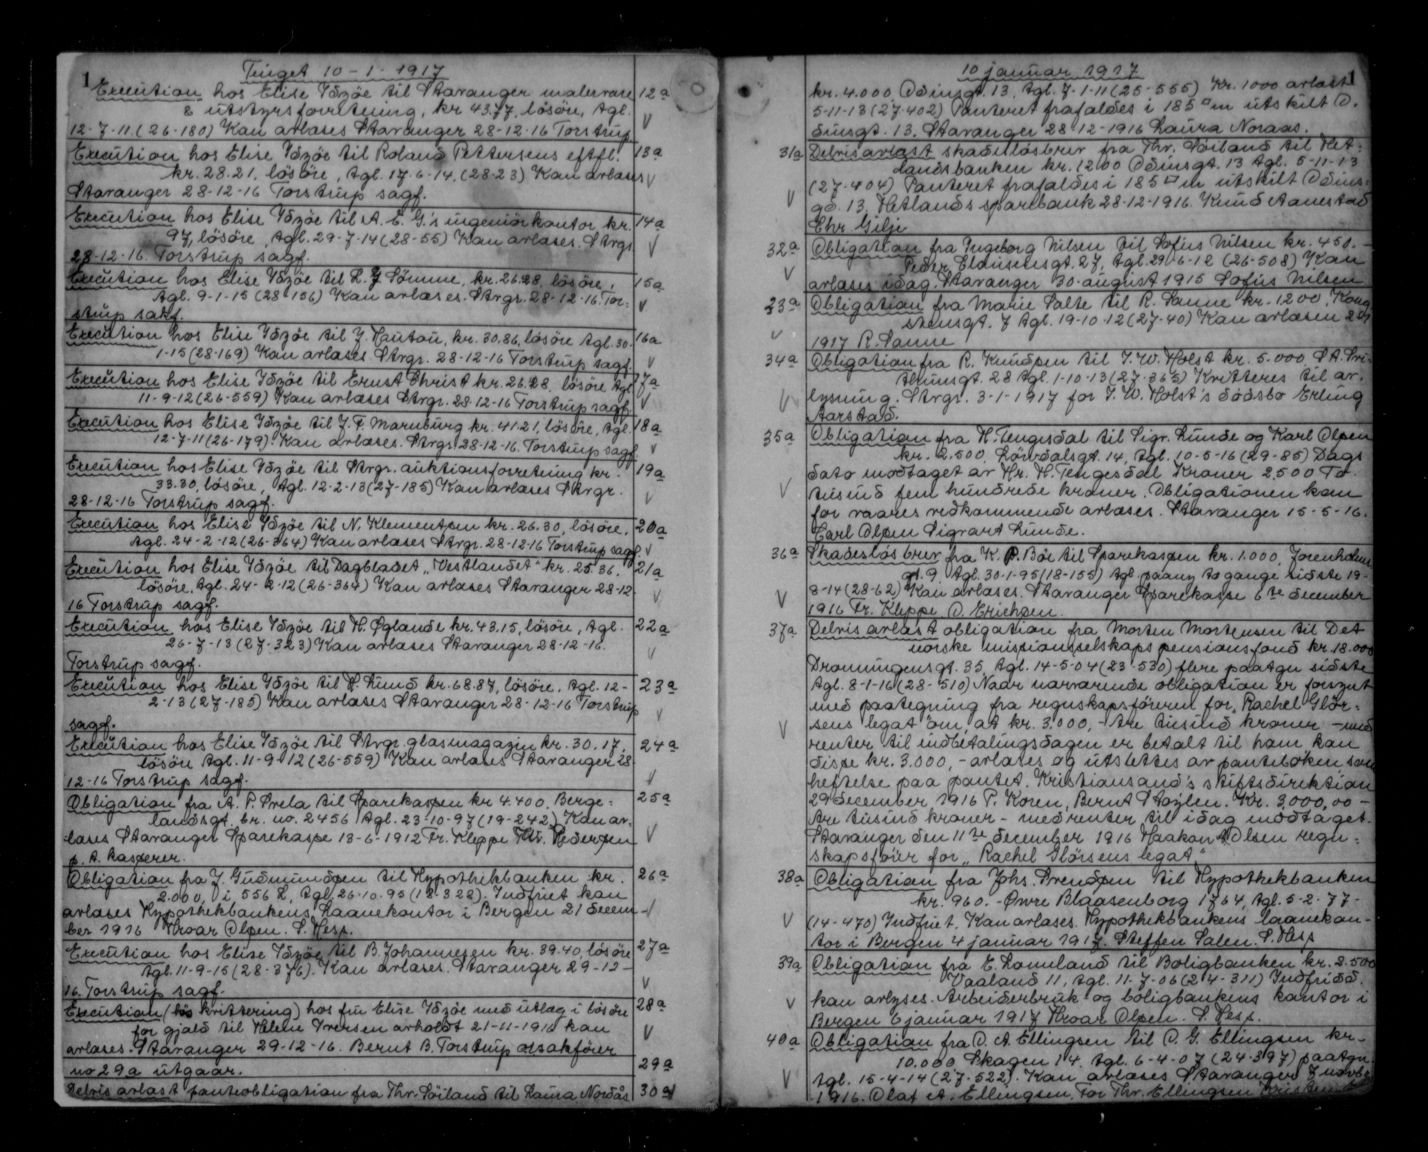 1
Tinget 10-1-1917
Execution hos Elise Idzöe til Stavanger malervare 12a
& utstyrsforretning, kr 43.77, lösöre, tgl.
12-7-11. (26-180) Kan avlæses Stavanger 28-12-16 Torstrup
Execution hos Elise Idzöe til Roland Pettersens eftfl. 13a
kr. 28.21, lösöre, tgl. 17-6-14. (28-23) Kan avlæses
Stavanger 28-12-16 Torstrup sagf.
Execution hos Elise Idzöe til A. E. G.'s ingeniörkontor kr. 14a
97, lösöre, tgl. 29-7-14 (28-55) Kan avlæses. Stvgr.
28-12-16. Torstrup sagf.
Execution hos Elise Idzöe til L. J Sömme, kr. 26.28, lösöre, 15a
tgl. 9-1-15 (28-156) Kan avlæses. Stvgr. 28-12-16. Tor-
strup sakf.
Execution hos Elise Idzöe til J. Hauton, kr. 30.86, lösöre tgl. 30- 16a
1-15 (28-169) Kan avlæses Stvgr. 28-12-16 Torstrup sagf.
Execution hos Elise Idzöe til Ernst Christ kr. 26.28, lösöre, tgl. 17a
11-9-12 (26-559) Kan avlæses Stvgr. 28-12-16 Torstrup sagf.
Execution hos Elise Idzöe til J. F. Marnburg kr. 41.21, lösöre, tgl. 18a
12-7-11 (26-179) Kan avlæses. Stvgr. 28-12-16. Torstrup sagf.
Execution hos Elise Idzöe til Stvgr. auktionsforretning kr. 19a
33.30, lösöre, tgl. 12-2-13 (27-185) Kan avlæses Stvgr.
28-12-16 Torstrup sagf.
Execution hos Elise Idzöe til N. Klementsen kr. 26.30, lösöre, 20a
tgl. 24-2-12 (26-364) Kan avlæses Stvgr. 28-12-16 Torstrup sagf.
Execution hos Elise Idzöe til Dagbladet „Vestlandet" kr. 25.36, 21a
lösöre, tgl. 24-2-12 (26-364) Kan avlæses Stavanger 28-12-
16 Torstrup sagf.
Execution hos Elise Idzöe til H. Øglande kr. 43.15, lösöre, tgl. 22a
26-7-13 (27-323) Kan avlæses Stavanger 28-12-16.
Torstrup sagf.
Execution hos Elise Idzöe til H. Lund kr. 68.87, lösöre, tgl. 12- 23a
2-13 (27-185) Kan avlæses Stavanger 28-12-16 Torstrup
sagf.
Execution hos Elise Idzöe til Stvgr. glasmagazin kr. 30.17, 24a
lösöre tgl. 11-9-12 (26-559) Kan avlæses Stavanger 28-
12-16 Torstrup sagf.
Obligation fra A. P. Svela til Sparekassen kr 4.400, Berge- 25a
landsgt. br. no. 2456 tgl. 23-10-97 (19-242) Kan av-
læses Stavanger Sparekasse 13-6-1912 Fr. Kleppe Chr. Pedersen
p. t. kasserer.
Obligation fra J. Gudmundsen til Hypothekbanken kr. 26a
2.000, i 556 L, tgl. 26-10-95 (18-322). Indfriet kan
avlæses Hypothekbankens laanekontor i Bergen 21 decem-
ber 1916 Hroar Olsen. S. Hess.
Execution hos Elise Idzöe til B. Johannesen kr. 39.40, lösöre 27a
tgl. 11-9-15 (28-376). Kan avlæses. Stavanger 29-12-
16. Torstrup sagf.
Execution (kvittering) hos frk Elise Idzöe med utlæg i lösöre 28a
for gjæld til Helene Iversen avholdt 21-11-1910 kan
avlæses. Stavanger 29-12-16. Bernt B. Torstrup o.r.sakförer
no 29a utgaar. 29a
Delvis avlæst panteobligation fra Thv. Söiland til Laura Noraas 30a
10 januar 1917
1
kr. 4.000 Odinsgt. 13, tgl. 7-1-11 (25-555) kr. 1000 avlæst
5-11-13 (27-402) Panteret frafaldes i 185 □m utskilt O-
dinsgt. 13. Stavanger 28-12-1916 Laura Noraas.
31a Delvis avlæst skadeslösbrev fra Thv. Söiland til Het-
landsbanken kr. 1200 Odinsgt. 13 tgl. 5-11-13
(27-404) Panteret frafaldes i 185 □m utskilt Odins-
gt. 13. Hetlands sparebank 28-12-1916. Knud Aanestad
Chr. Gilje
32a Obligation fra Ingeborg Nilsen til Sofus Nilsen kr. 450.-
Peder Clausensgt. 27, tgl. 29-6-12 (26-508) Kan
avlæses idag. Stavanger 30. august 1915 Sofus Nilsen
33a Obligation fra Marie Salte til R. Sanne kr. 1200, Kongs-
stensgt. 7 tgl. 19-10-12 (27-40) Kan avlæsen 2/1
1917 R. Sanne
34a Obligation fra R. Knudsen til J. W. Holst kr. 5.000 St. Svi-
thunsgt. 28 tgl. 1-10-13 (27-365) Kvitteres til av-
lysning. Stvgr. 3-1-1917 for J. W. Holst's dödsbo Erling
Aarstad.
35a Obligation fra H. Tengesdal til Sigv. Lunde og Karl Olsen
kr. 2.500, Lövdalsgt. 14, tgl. 10-5-16 (29-85) Dags
dato modtaget av Hr. H. Tengesdal Kroner 2.500 To
tusind fem hundrede kroner. Obligationen kan
for vaares vedkommende avlæses. Stavanger 15-5-16.
Carl Olsen Sigvart Lunde.
36a Skadeslösbrev fra K. P. Böe til Sparekassen kr. 1.000, Jorenholms-
gt. 9, tgl. 30-1-95 (18-155) tgl. paany to gange sidste 19-
9-14 (28-62) Kan avlæses. Stavanger Sparekasse 6te december
1916 Fr. Kleppe O. Erichsen.
37a Delvis avlæst obligation fra Morten Mortensen til Det
norske missionsselskaps pensionsfond kr. 18.000
Dronningensgt. 35, tgl. 14-5-04 (23-530) flere paategn sidste
tgl. 8-1-16 (28-510) Naar nærværende obligation er forsynt
med paategning fra regnskapsföreren for „Rachel Glör-
sens legat" om, at kr. 3.000,- tre tusind kroner - med
renter til indbetalingsdagen er betalt til ham kan
disse kr. 3.000,- avlæses og utslettes av panteboken som
heftelse paa pantet. Kristiansand's stiftsdirektion
29 december 1916 P. Koren, Bernt Stöylen. Kr. 3.000,00 -
tre tusind kroner - med renter til idag modtaget.
Stavanger den 11te december 1916 Haakon Olsen regn-
skapsförer for „Rachel Glörsens legat".
38a Obligation fra Johs. Svendsen til Hypothekbanken
kr. 960.- Øvre Blaasenborg 1764, tgl. 5-2-77-
(14-470) Indfriet. Kan avlæses. Hypothekbankens laanekon-
tor i Bergen 4 januar 1917. Steffen Salen. S. Hess
39a Obligation fra E. Lomeland til Boligbanken kr. 2.500
Vaaland 11, tgl. 11-7-06 (24-311) Indfridd.
kan avlyses. Arbeiderbruk og boligbankens kontor i
Bergen 6 januar 1917 Hroar Olsen. S. Hess.
40a Obligation fra O. A Ellingsen til O. G. Ellingsen kr.
10.000 Skagen 14. tgl. 6-4-07 (24-397) paategn.
tgl. 15-4-14 (27-522). Kan avlæses Stavanger
1916. Olaf A. Ellingsen. For Thv. Ellingsen